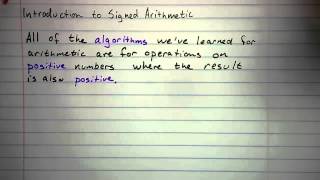 Introduction to Signed Arithmetic
All of the algorithms we've learned for
arithmetic are for operations on
positive numbers where the result
is also positive.